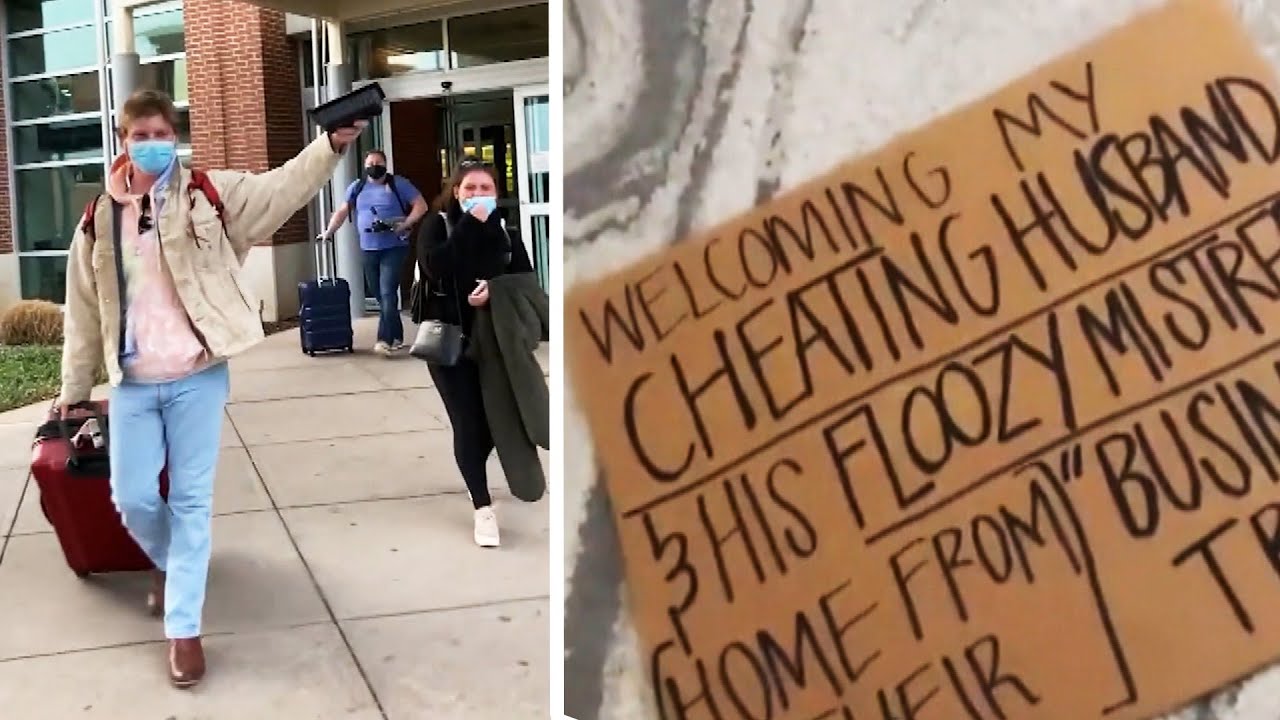 WELCOMING MY
CHEATING HUSBAND
& HIS FLOOZY MISTRE
HOME FROM "BUSIN
THEIR TR